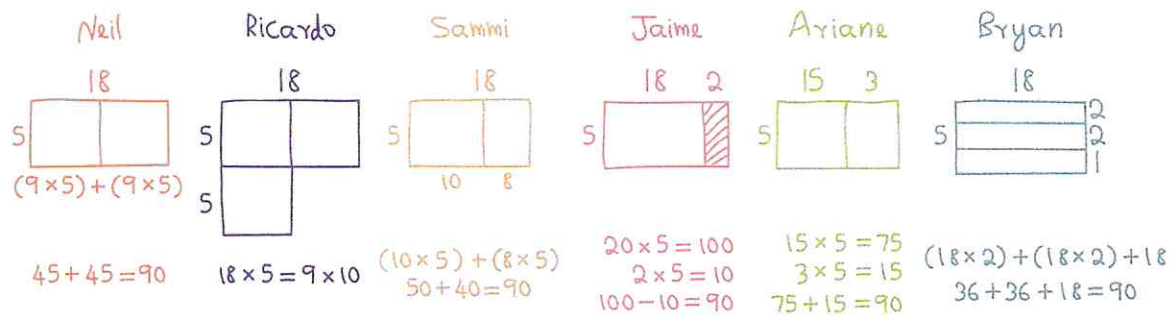 Neil
18
5
(9×5)+(9×5)
45+45=90
Ricardo
18
5
5
18×5=9×10
Sammi
18
5
10 8
(10×5)+(8×5)
50+40=90
Jaime
18 2
5
20×5=100
2×5=10
100-10=90
Ariane
15 3
5
15×5=75
3×5=15
75+15=90
Bryan
18
5
2
2
1
(18×2)+(18×2)+18
36+36+18=90